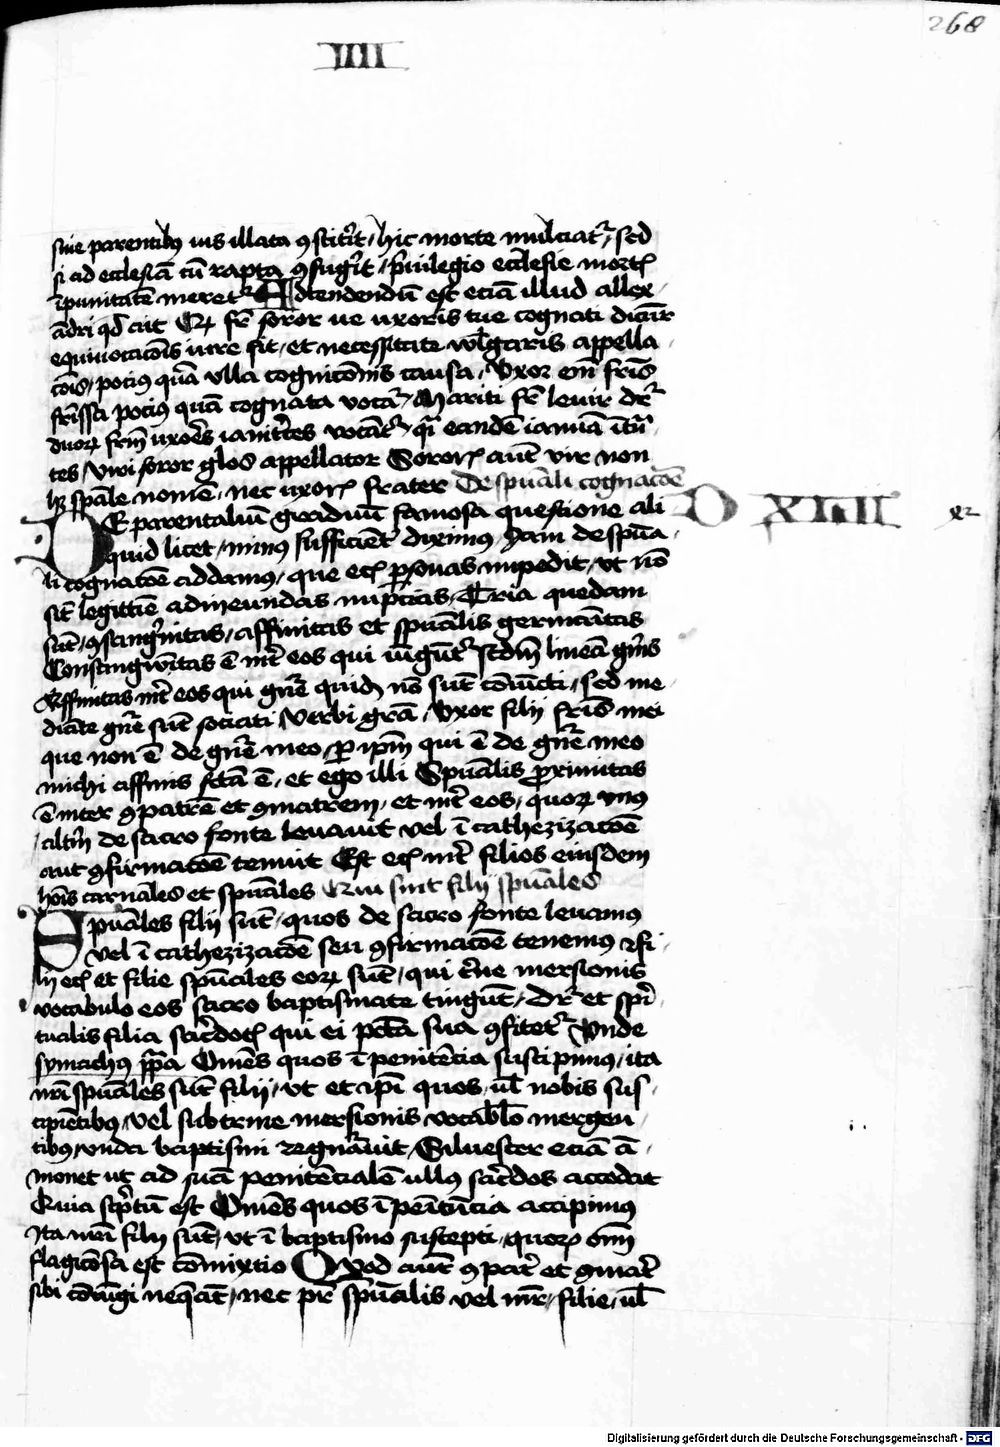 268
IIII
siue parentibus uis illata 9stit'it / hic morte mulctat' / sed
si ad ecclesiā cū rapta 9fug'it / p'uilegio eccl'esie mort'
īpunitatē meret' Adtendendū est eciā illud allex
ādri qd' ait Qz fr' soror ue uxoris tue cognati dicūt'
equiuocacōis iure fit / et necessitate vl'garis appella
cōis / pocius quā ulla cognicōnis causa / Uxor em̄ fr̄is
fr̄issa pocius quā cognata vocat' / Mariti fr' leuir dr'
duorz fr̄m uxores ianitrices vocāt' / q' eandē ianuā ītrā
tes / viri soror glos appellator Sororis aut̄ vir non
hz spāle nomē / nec uxoris frater De spūali cognacōe
DE parentaliū graduū famosa questione ali D XLII
quid licet / minus sufficient' diximus / Jam de spūa
li cognacōe addamus / que eciā p'sonas impedit / vt nō
sit legittīe ad ineundas nupcias / Tria quedam
sūt / 9sanguinitas / affinitas et spūalis germāitas
Consanguinitas ē int' eos qui iūgūt' scdm lineā gn̄is
Affinitas int' eos qui gn̄e quidz nō sūt cōiūcti / sed me
diāte gn̄e sūt sociati / Verbi grā / Uxor filij fr̄is mei
que non ē de gn̄e meo / p ip̄m qui ē de gn̄e meo
michi affinis fcā ē / et ego illi Spūalis proximitas
ē inter 9patrē et 9matrem / et int' eos / quorz vnus
alt'm de sacro fonte leuauit vel ī cathezizacōe
aut 9firmacōe tenuit Est eciā int' filios eiusdem
hōis carnales et spūales Qui sint filij spūales
Spūales filij sūt / quos de sacro fonte leuamus
vel ī cathezizacōe seu 9firmacōe tenemus / fi
lij eciā et filie spūales eorz sūt / qui t'ne mersionis
vocabulo eos sacro baptismate tingūt / Dr' et sp'i
tualis filia sac'dotis qui ei pctā sua 9fitet' Vnde
symachus pp̄a Omēs quos ī penitēcia suscipimus / ita
nr̄i spūales sūt filij / vt et ip̄i quos / ul' nobis sus
cipientibus / vel sub trine mersionis vocabl'o mergen
tibus / vnda baptismi regn̄auit / Siluester eciā ā
monet ut ad suā penitēcialē ullus sac'dos accedat
Quia sc'ptū est Omēs quos ī penitēncia accipimus
Ita nr̄i filij sūt / vt ī baptismo suscepti / quorz om̄
flagicōsa est cōmixtio Quod aut̄ 9pat' et 9mat'
sibi cōiūgi neq̄āt / nec pr' spūalis vel mr' / filie / ul'
Digitalisierung gefördert durch die Deutsche Forschungsgemeinschaft - DFG